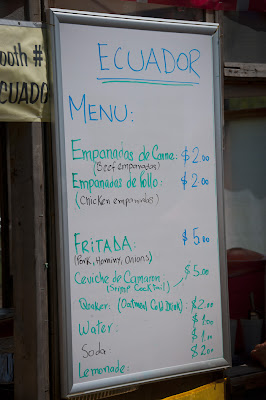 ooth #
CUADO
ECUADOR
MENU:
Empanadas de Carne: $2.00
(Beef empanadas)
Empanadas de Pollo: $2.00
(Chicken empanadas)
FRITADA: $5.00
(Pork, Hominy, Onions)
Ceviche de Camaron $5.00
(Shrimp Cocktail)
Quaker: (Oatmeal Cold Drink) $2.00
Water: $1.00
Soda $1.00
Lemonade: $2.00